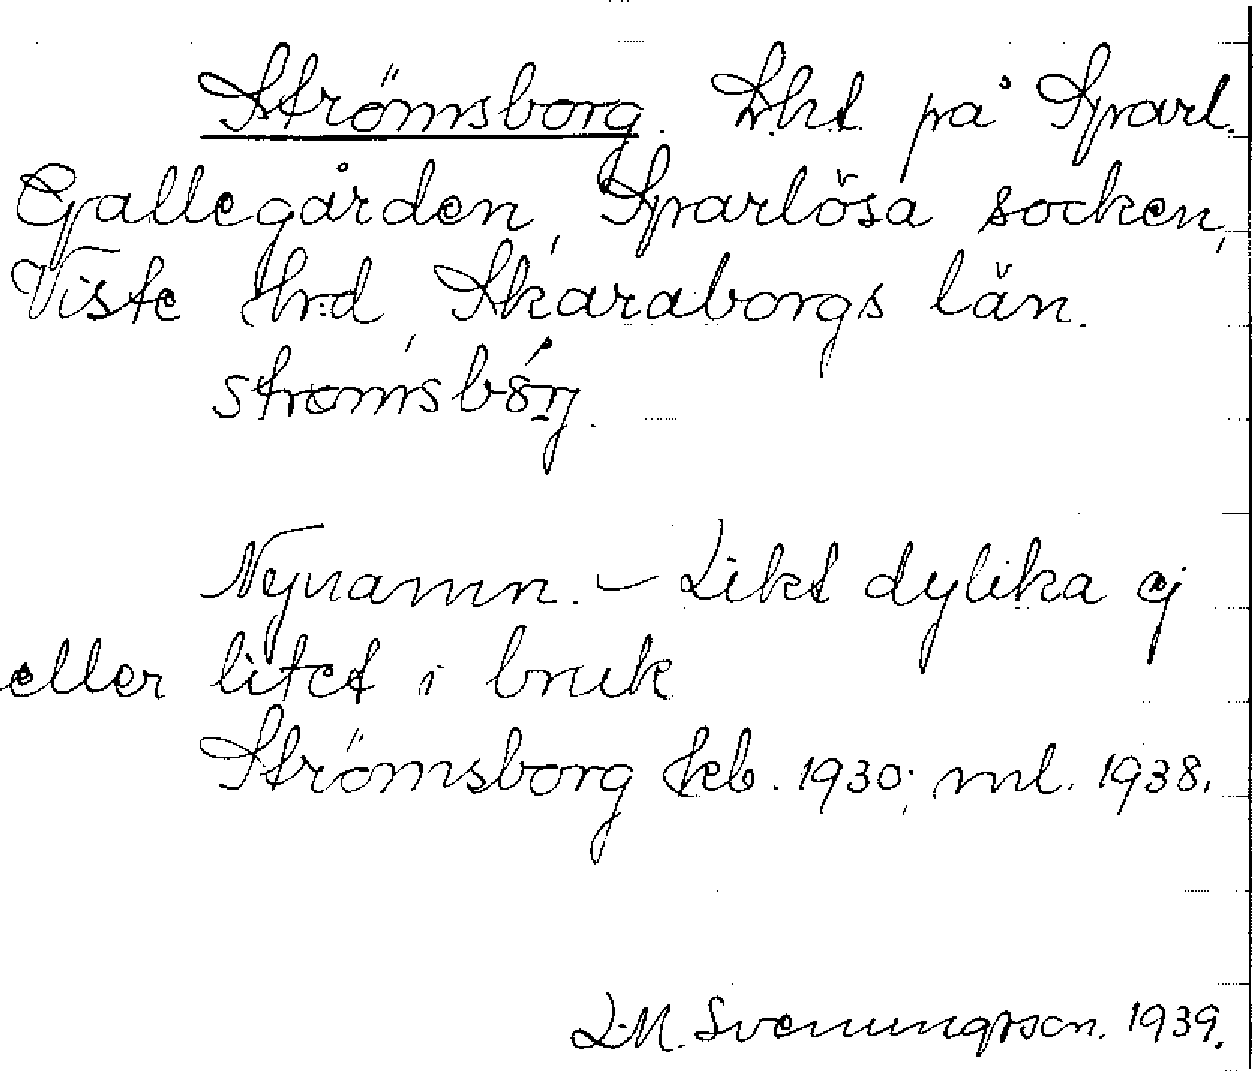 Strömsborg. Lht på Sparl.
Gallegården, Sparlösa socken,
Viste hrd, Skaraborgs län.
Nynamn. – Likt dylika ej
eller litet i bruk
Strömsborg kb. 1930; ml. 1938.
L.M. Svenungsson. 1939.